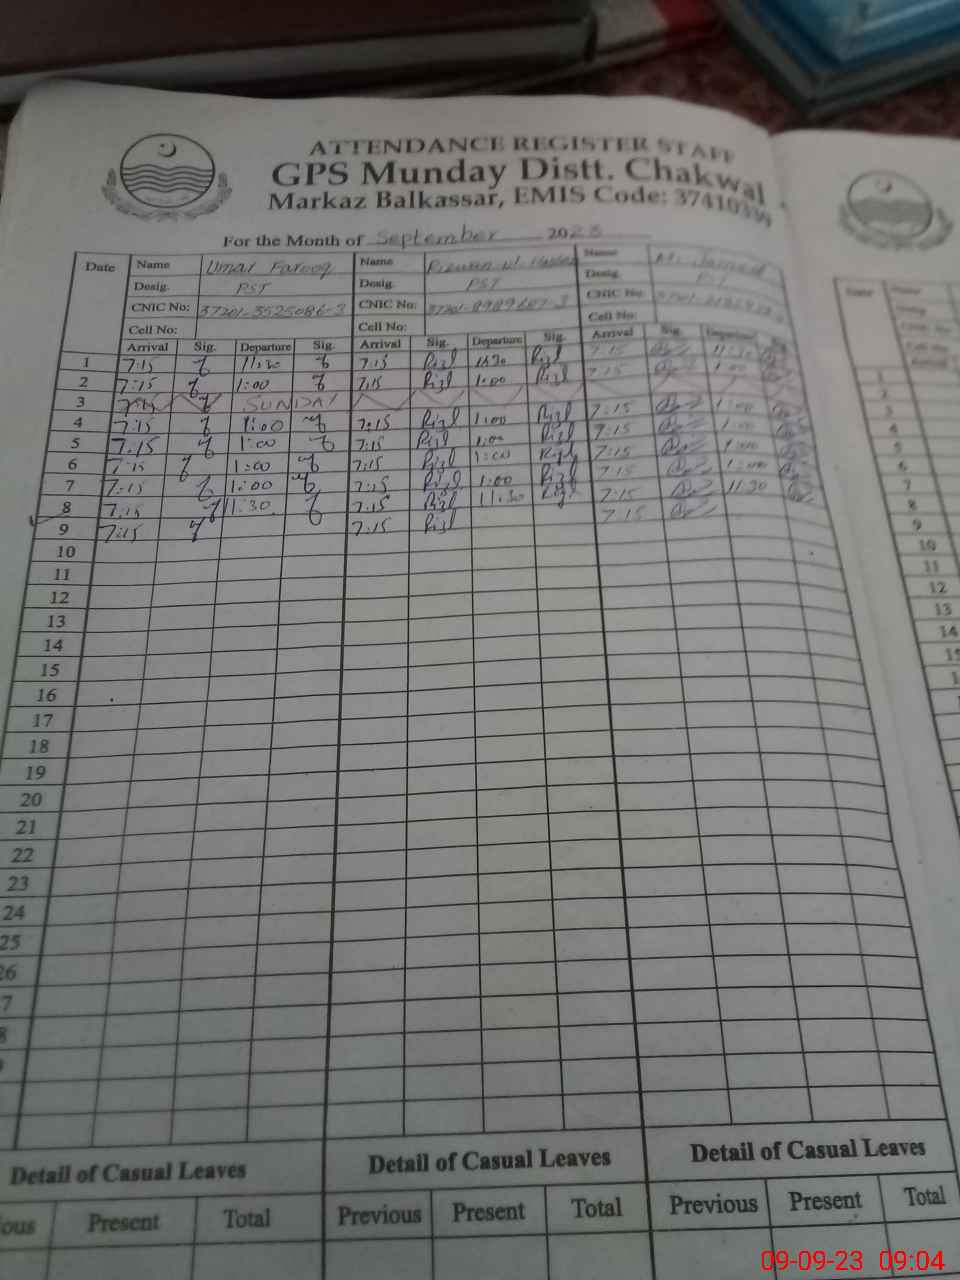 ATTENDANCE REGISTER STAFF
GPS Munday Distt. Chakwal
Markaz Balkassar, EMIS Code: 37410339
For the Month of September 2023
Date Name Umar Farooq Name Rizwan ul Hassan Name M.
Desig. PST Desig. PST Desig. PST
CNIC No: 37201-3525086-3 CNIC No: 37201-8989687-3 CNIC No:
Cell No: Cell No: Cell No:
Arrival Sig. Departure Sig. Arrival Sig. Departure Sig. Arrival Sig. Departure Sig.
1 7:15 11:30 7:15 Rizl 11:30 Rizl 7:15 11:30
2 7:15 1:00 7:15 Rizl 1:00 Rizl 7:15 1:00
3 SUNDAY
4 7:15 1:00 7:15 Rizl 1:00 Rizl 7:15 1:00
5 7:15 1:00 7:15 Rizl 1:00 Rizl 7:15 1:00
6 7:15 1:00 7:15 Rizl 1:00 Rizl 7:15 1:00
7 7:15 1:00 7:15 Rizl 1:00 Rizl 7:15 1:00
8 7:15 11:30 7:15 Rizl 11:30 Rizl 7:15 11:30
9 7:15 7:15 Rizl 7:15
10
11
12
13
14
15
16
17
18
19
20
21
22
23
24
25
26
7
8
Detail of Casual Leaves Detail of Casual Leaves Detail of Casual Leaves
ious Present Total Previous Present Total Previous Present Total
1
2
3
4
5
6
7
8
9
10
11
12
13
14
09-09-23 09:04